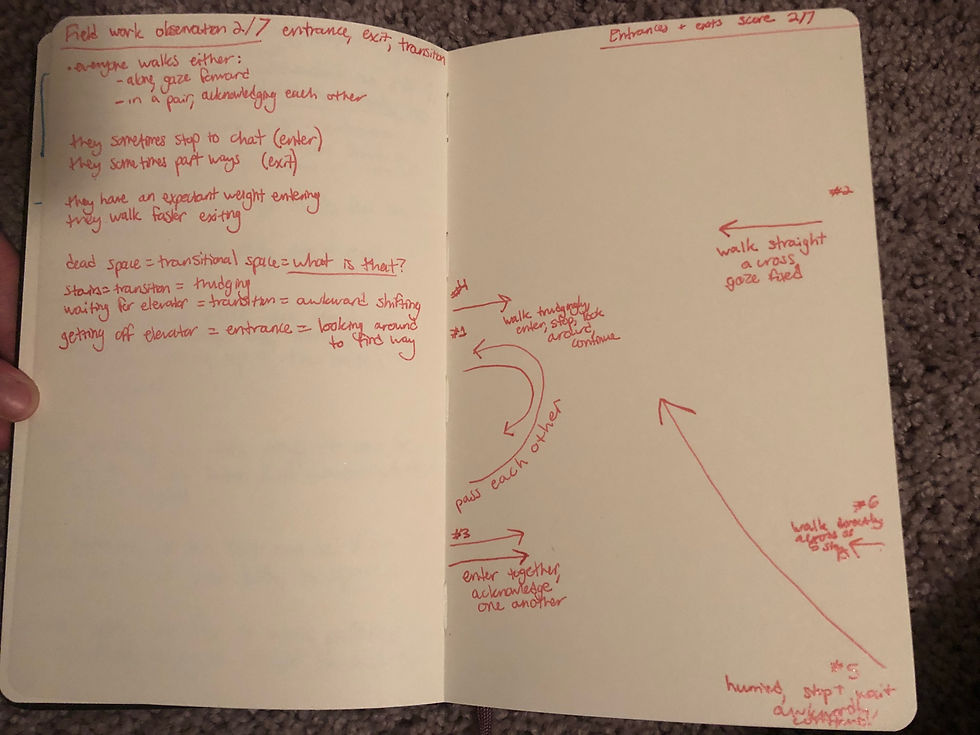 Field work observation 2/7 entrance, exit, transition
• everyone walks either:
- alone, gaze forward
- in a pair, acknowledging each other
they sometimes stop to chat (enter)
they sometimes part ways (exit)
they have an expectant weight entering
they walk faster exiting
dead space = transitional space = what is that?
stairs = transition = trudging
waiting for elevator = transition = awkward shifting
getting off elevator = entrance = looking around
to find way
Entrances + exits score 2/7
#2
walk straight
across
gaze fixed
#4
walk trudgingly
enter, stop, look
around,
continue
#1
pass each other
#3
enter together,
acknowledge
one another
#6
walk directly
across as
5 stops
#5
hurried, stop + wait
awkwardly,
continue